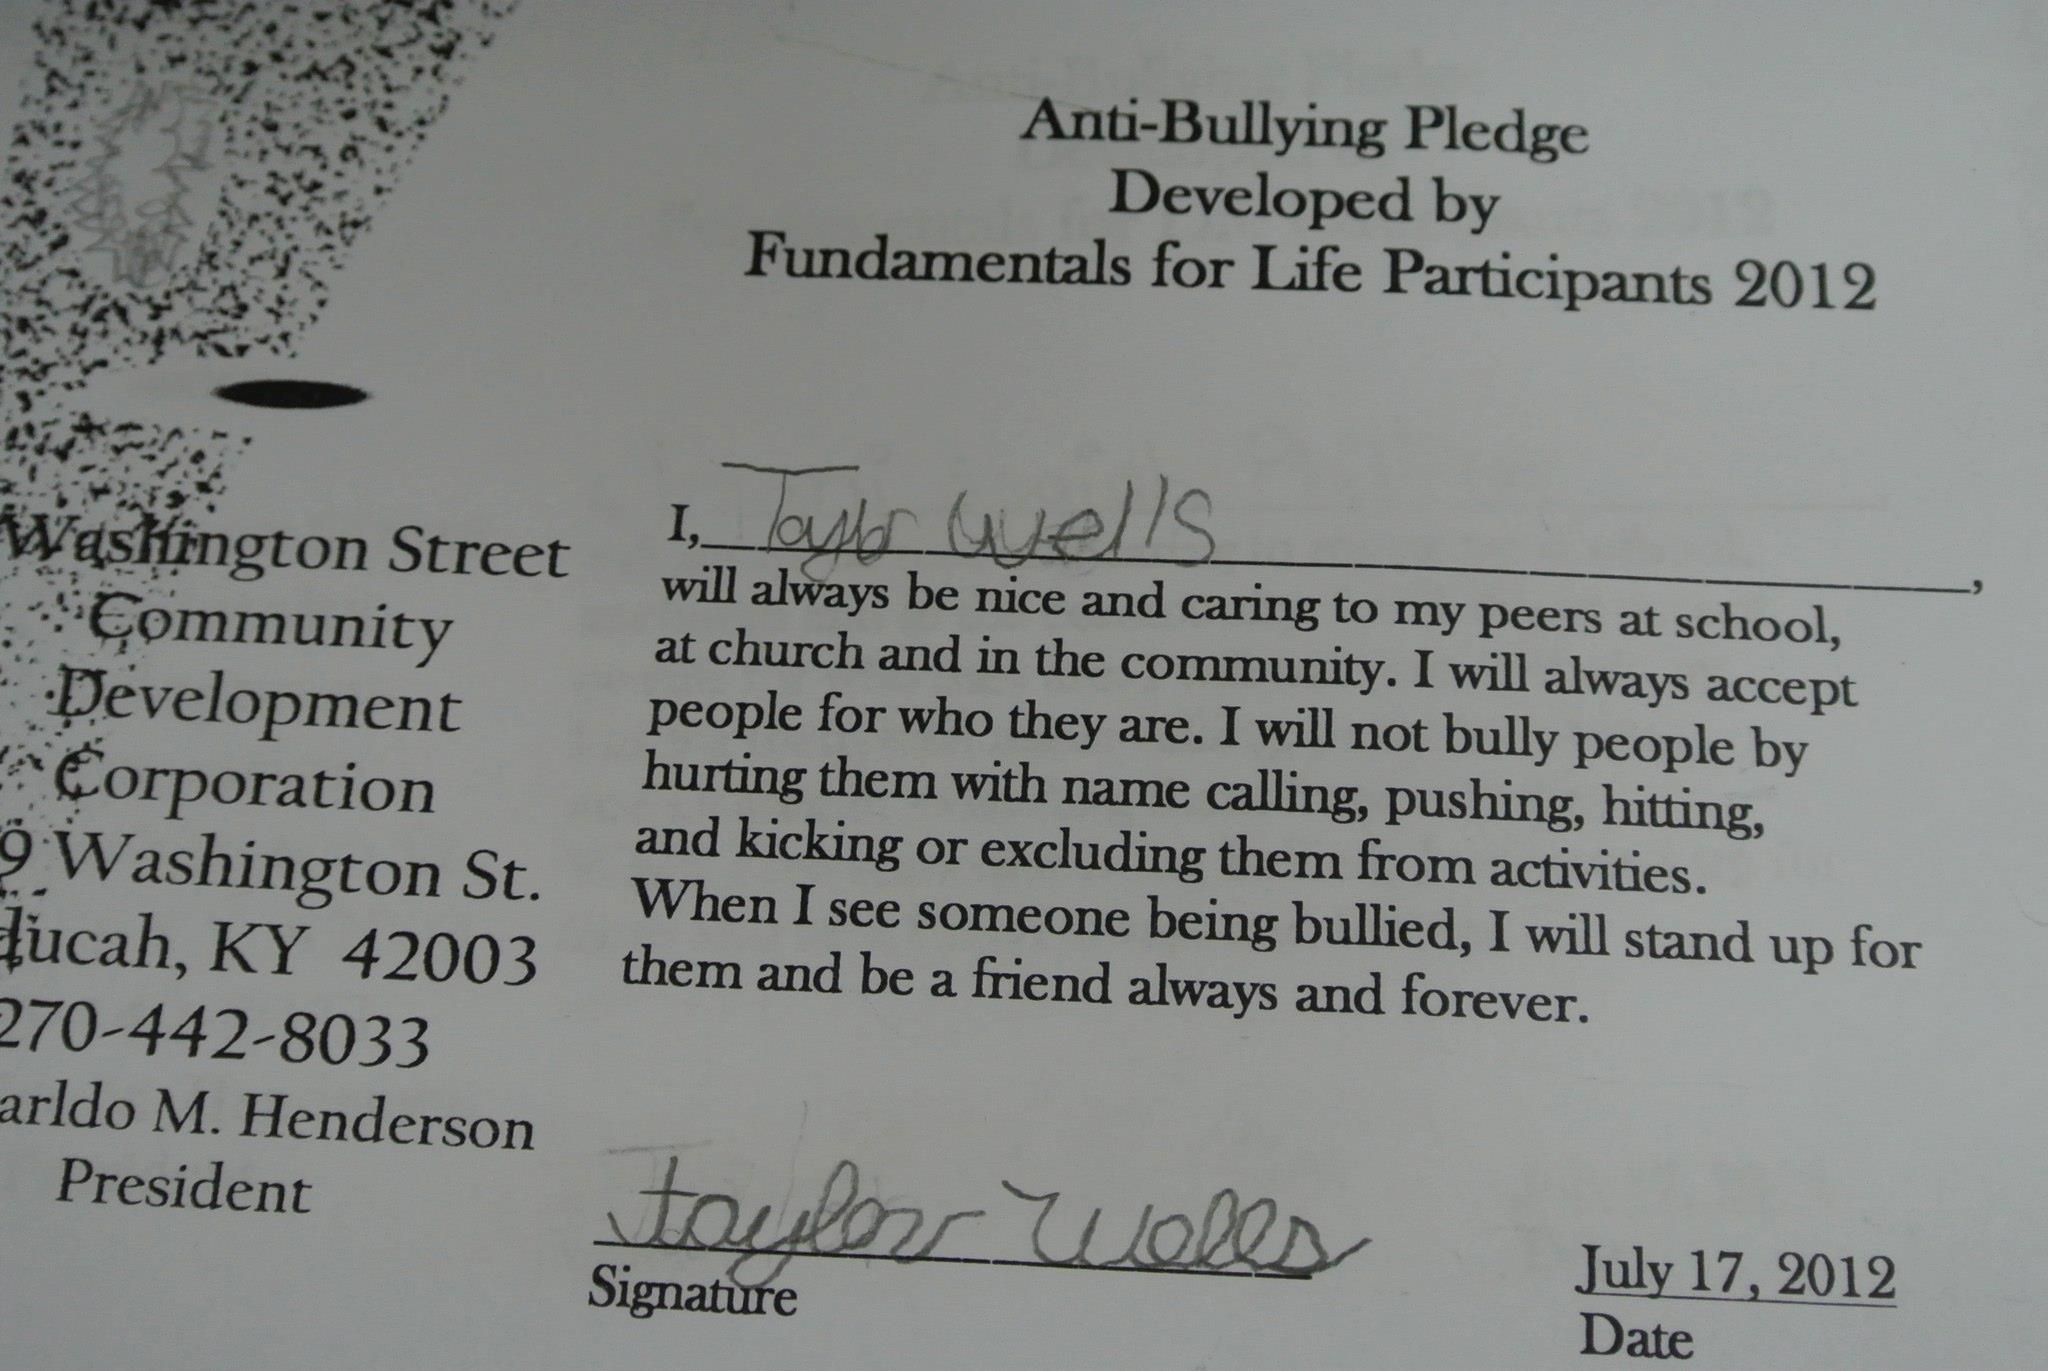 Anti-Bullying Pledge
Developed by
Fundamentals for Life Participants 2012
Washington Street
Community
Development
Corporation
9 Washington St.
ducah, KY 42003
270-442-8033
arldo M. Henderson
President
I, Taylor Wells,
will always be nice and caring to my peers at school,
at church and in the community. I will always accept
people for who they are. I will not bully people by
hurting them with name calling, pushing, hitting,
and kicking or excluding them from activities.
When I see someone being bullied, I will stand up for
them and be a friend always and forever.
Taylor Wells
Signature
July 17, 2012
Date